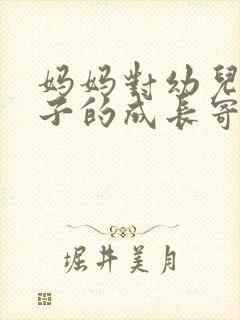 妈妈對幼兒
子的成长寄
堀井美月